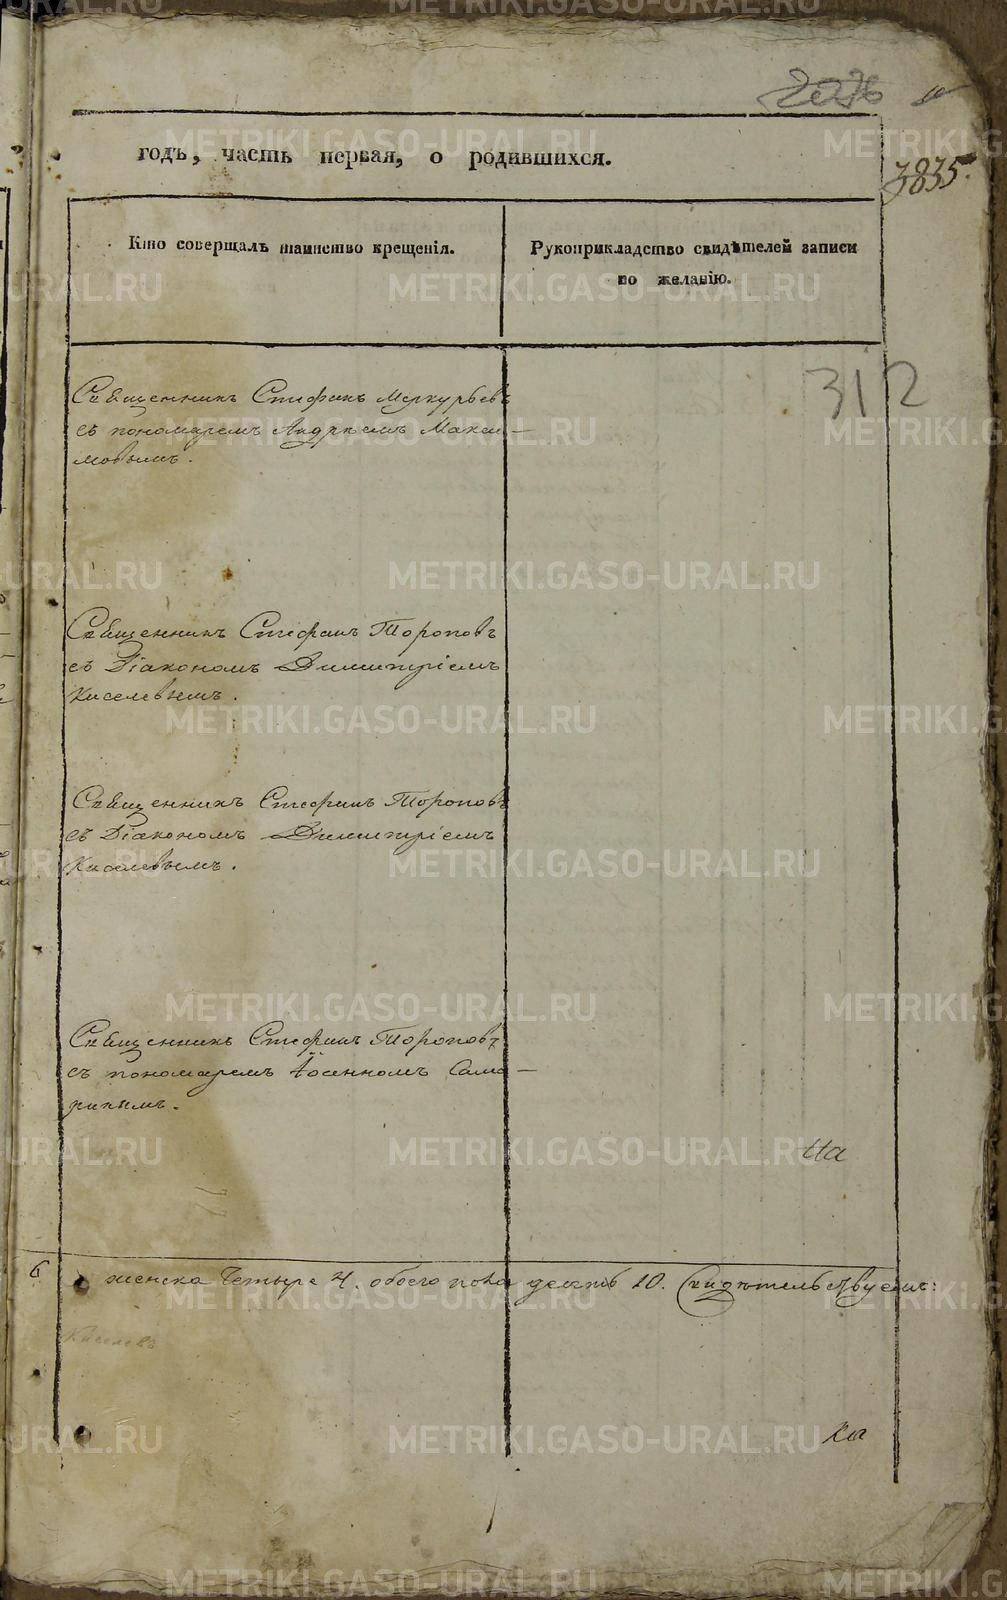 годъ, часть первая, о родившихся.
3835.
Кто совершалъ таинство крещенія.
Рукоприкладство свидѣтелей записи
по желанію.
312
Священникъ Стефанъ Меркурьевъ
съ пономаремъ Андреемъ Макси-
мовымъ.
Священникъ Стефанъ Тороповъ
съ Діакономъ Димитріемъ
Киселевымъ.
Священникъ Стефанъ Тороповъ
съ Діакономъ Димитріемъ
Киселевымъ.
Священникъ Стефанъ Тороповъ
съ пономаремъ
6
женска Четыре 4. обоего пола десять 10. Свидѣтельствуемъ:
Киселевъ
METRIKI.GASO-URAL.RU